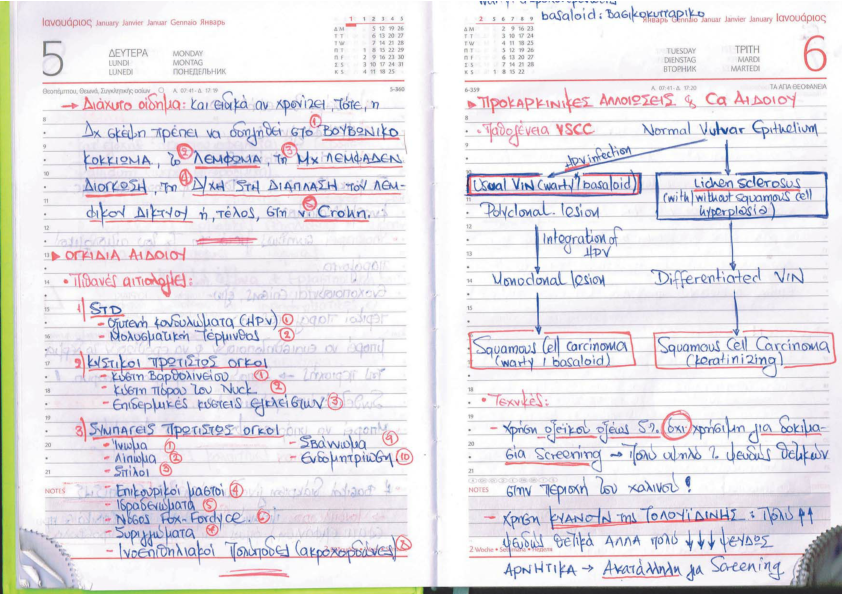 Ιανουάριος January Janvier Januar Gennaio Январь
5
ΔΕΥΤΕΡΑ MONDAY
LUNDI MONTAG
LUNEDI ПОНЕДЕЛЬНИК
5-360
→ Διάχυτο οίδημα: Και ειδικά αν χρονίζει, τότε, η
Δχ σκέψη πρέπει να οδηγηθεί στο ① ΒΟΥΒΩΝΙΚΟ
ΚΟΚΚΙΩΜΑ, ② το ΛΕΜΦΩΜΑ, ③ τη Μχ ΛΕΜΦΑΔΕΝ
ΔΙΟΓΚΩΣΗ, ④ τη Δ/ΧΗ ΣΤΗ ΔΙΑΠΛΑΣΗ του ΛΕΜ-
φικού Δικτύου ή, τέλος, ⑤ στη ν. Crohn.
► ΟΓΚΙΔΙΑ ΑΙΔΟΙΟΥ
• Πιθανές αιτιολογίες:
1) STD
- Οξυτενή κονδυλώματα (HPV) ①
- Μολυσματική Τέρμινθος ②
2) ΚΥΣΤΙΚΟΙ ΠΡΩΤΙΣΤΩΣ ΟΓΚΟΙ
- κύστη Βαρθολινείου ①
- κύστη πόρου του Nuck ②
- επιδερμικές κύστεις εγκλείστων ③
3) ΣΥΜΠΑΓΕΙΣ ΠΡΩΤΙΣΤΩΣ ΟΓΚΟΙ
- Ίνωμα ① - Σβάννωμα ⑨
- Λίπωμα ② - Ενδομητρίωση ⑩
- Σπίλοι ③
NOTES - Επικουρικοί μαστοί ④
- Ιδραδενώματα ⑤
- Νόσος Fox-Fordyce ⑥
- Συριγγώματα ⑦
- Ινοεπιθηλιακοί Πολύποδες (ακροχορδώνες) ⑧
basaloid: Βασικοκυτταρικο
Январь Gennaio Januar Janvier January Ιανουάριος
6
TUESDAY ΤΡΙΤΗ
DIENSTAG MARDI
ВТОРНИК MARTEDI
6-359 ΤΑ ΑΓΙΑ ΘΕΟΦΑΝΕΙΑ
► ΠΡΟΚΑΡΚΙΝΙΚΕΣ ΑΛΛΟΙΩΣΕΙΣ & Ca ΑΙΔΟΙΟΥ
• Παθογένεια VSCC Normal Vulvar Epithelium
HPV infection
Usual VIN (warty/basaloid) Lichen sclerosus
(with/without squamous cell
hyperplasia)
Polyclonal lesion
Integration of
HPV
Monoclonal lesion Differentiated VIN
Squamous Cell carcinoma Squamous Cell Carcinoma
(warty/basaloid) (keratinizing)
• Τεχνικές:
- Χρήση οξεικού οξέως 5% όχι χρήσιμη για δοκιμα-
σία screening → Πολύ υψηλό % ψευδώς θετικών
NOTES στην περιοχή του χαλινού!
- Χρήση ΚΥΑΝΟΥΝ της ΤΟΛΟΥΪΔΙΝΗΣ: Πολύ ↑↑
ψευδώς θετικά ΑΛΛΑ πολύ ↓↓↓ ψευδώς
ΑΡΝΗΤΙΚΑ → Ακατάλληλη για Screening